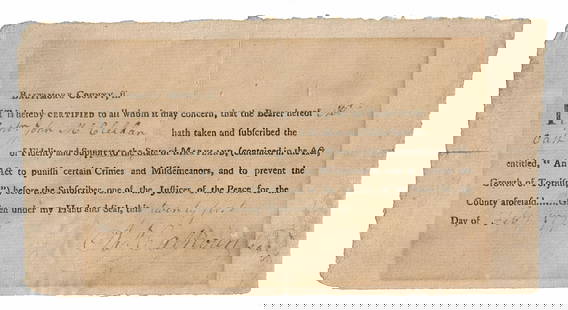 BALTIMORE COUNTY, ſſ.
IT is hereby CERTIFIED to all whom it may concern, that the Bearer hereof
John Mc hath taken and ſubſcribed the
Oath
of Fidelity and Support to the State of MARYLAND, (contained in the Act,
entitled, "An
Act to puniſh certain Crimes and Miſdemeanors, and to prevent the
Growth of Toryiſm,") before the Subſcriber, one of the Juſtices of the Peace for the
County aforeſaid. Given under my Hand and Seal, this twenty first
Day of
Calhoun